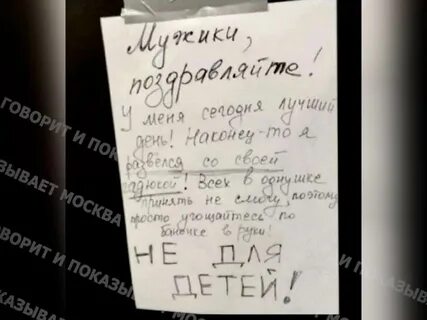 Мужики,
поздравляйте!
У меня сегодня лучший
день! Наконец-то я
развёлся со своей
гадюкой! Всех в однушке
принять не смогу, поэтому
просто угощайтесь по
баночке в руки!
НЕ ДЛЯ
ДЕТЕЙ!
ГОВОРИТ И ПОКАЗЫВАЕТ МОСКВА
ГОВОРИТ И ПОКАЗЫВАЕТ